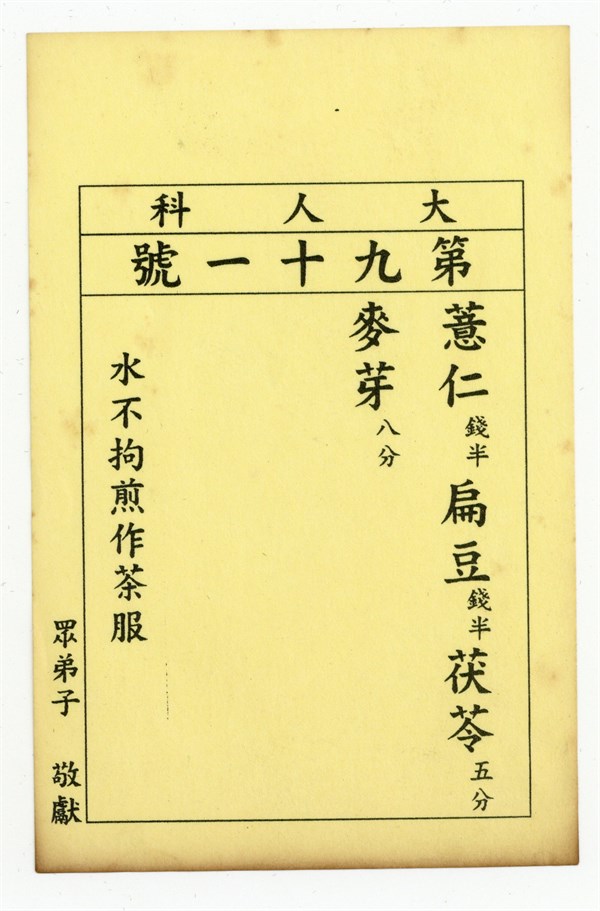 大人科
第九十一號
薏仁錢半 扁豆錢半 茯苓五分
麥芽八分
水不拘煎作茶服
眾弟子 敬獻